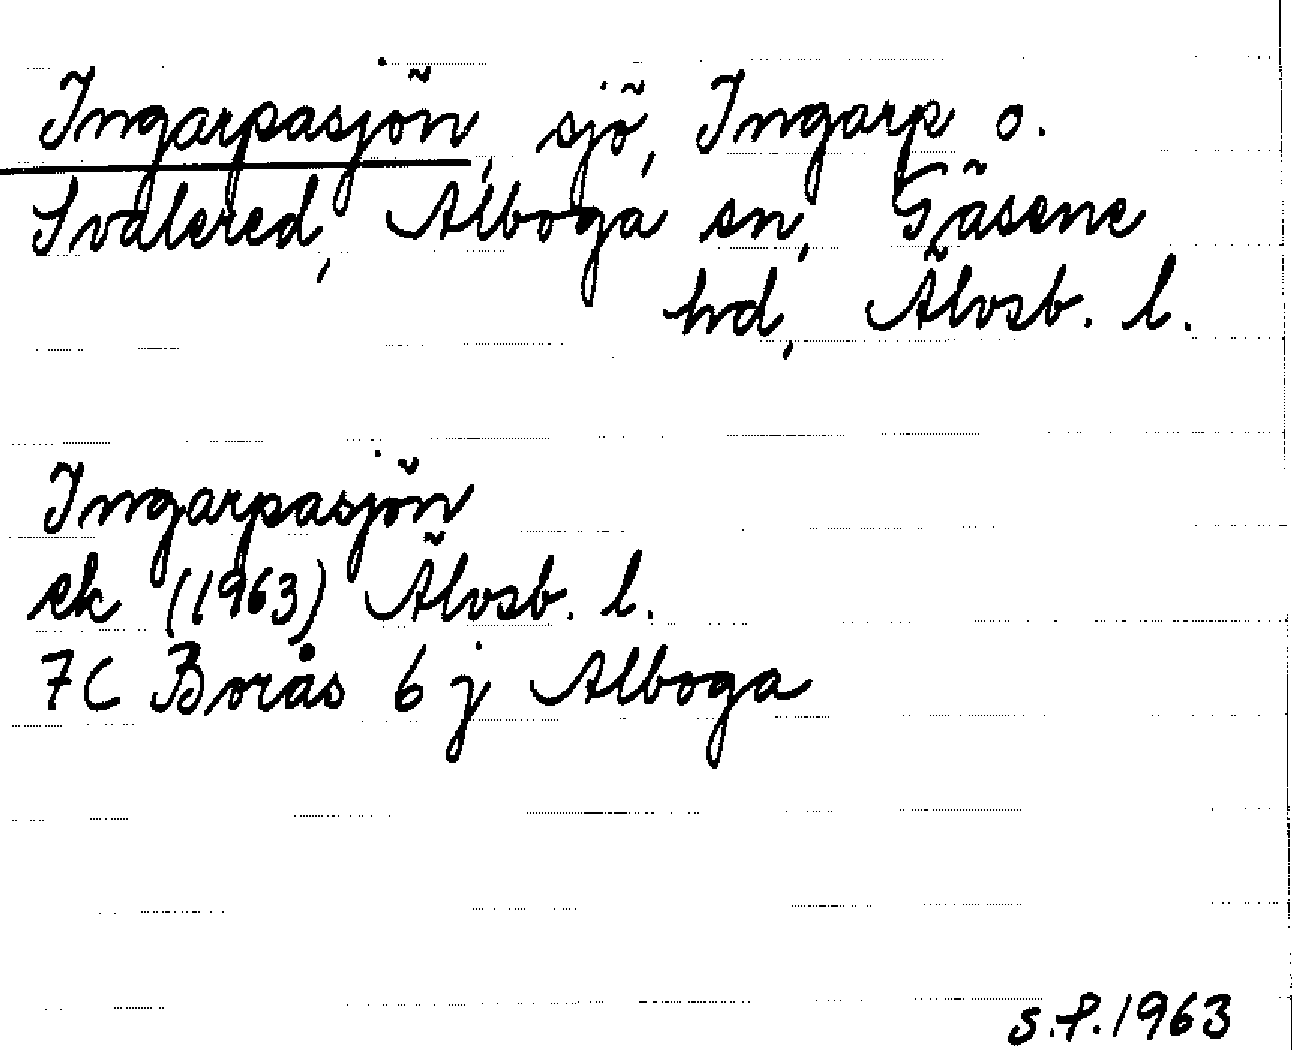 Ingarpasjön, sjö, Ingarp o.
Svalered, Alboga sn, Gäsene
hd, Älvsb. l.
Ingarpasjön
ek (1963) Älvsb. l.
7C Borås 6 j Alboga
S.P. 1963